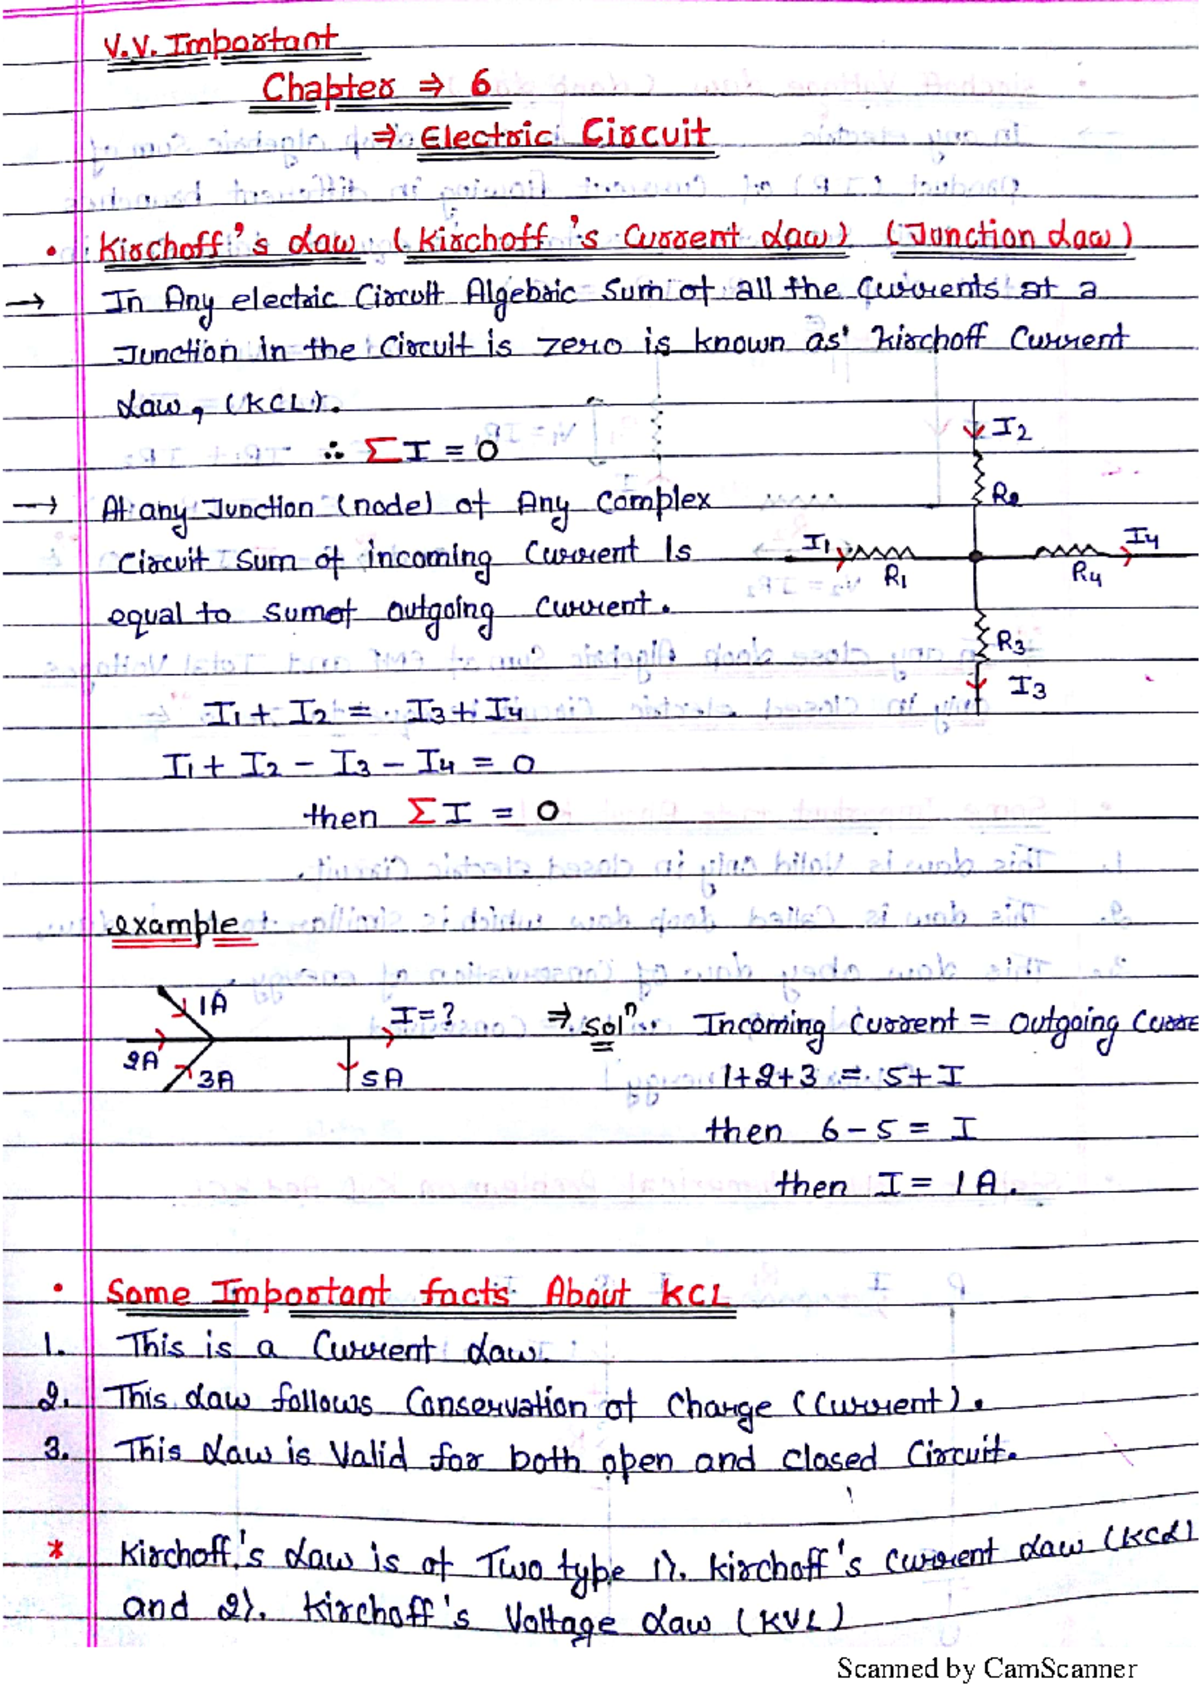 V.V. Important
Chapter ⇒ 6
⇒ Electric Circuit
• Kirchoff's Law (Kirchoff's Current Law) (Junction Law)
→ In Any electric Circuit Algebric Sum of all the Currents at a
Junction in the Circuit is zero is known as' Kirchoff Current
Law, (KCL).
∴ ΣI = 0
I2
R2
→ At any Junction (node) of Any Complex
Circuit Sum of incoming Current Is
equal to Sum of Outgoing Current.
I1
R1
I4
R4
R3
I3
I1 + I2 = I3 + I4
I1 + I2 - I3 - I4 = 0
then ΣI = 0
example
1A
2A
3A
I = ?
5A
⇒ Solⁿ.. Incoming Current = Outgoing Curre
1+2+3 = 5+I
then 6-5 = I
then I = 1A.
• Some Important facts About KCL
1. This is a Current Law.
2. This Law follows Conservation of Charge (Current).
3. This Law is Valid for both open and Closed Circuit.
* Kirchoff's Law is of Two type 1). Kirchoff's Current Law (KCL)
and 2). Kirchoff's Voltage Law (KVL)
Scanned by CamScanner